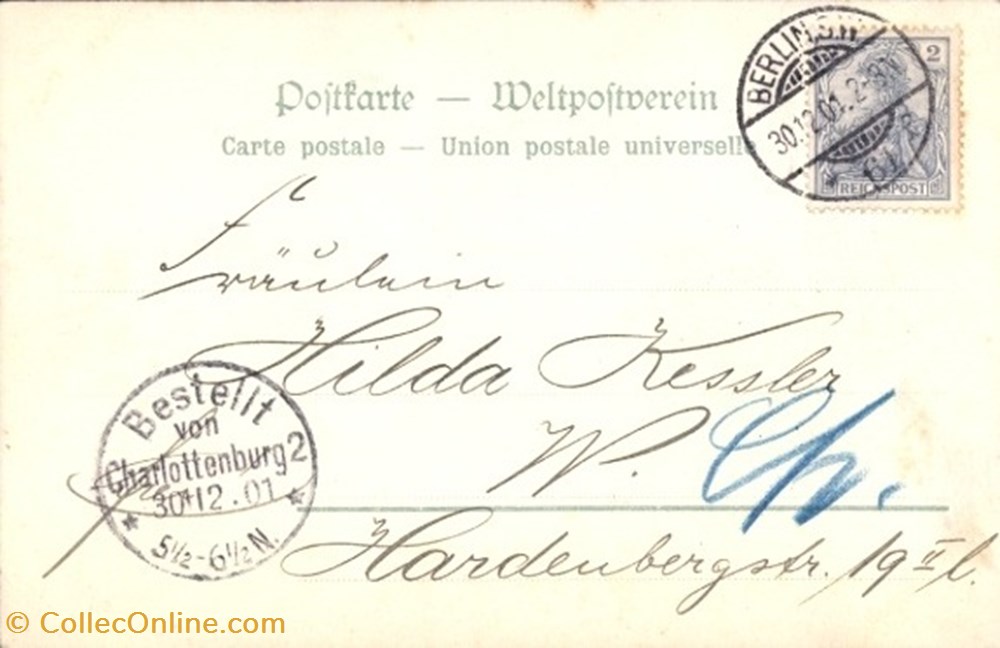 Postkarte — Weltpostverein
Carte postale — Union postale universelle
BERLIN, S.W.
30.12.01. 2-3N
* 61
2
REICHSPOST
Fräulein
Hilda Kessler
W.
Hardenbergstr. 19 II l.
Bestellt
von
Charlottenburg 2
30.12.01
5½-6½ N.
© CollecOnline.com